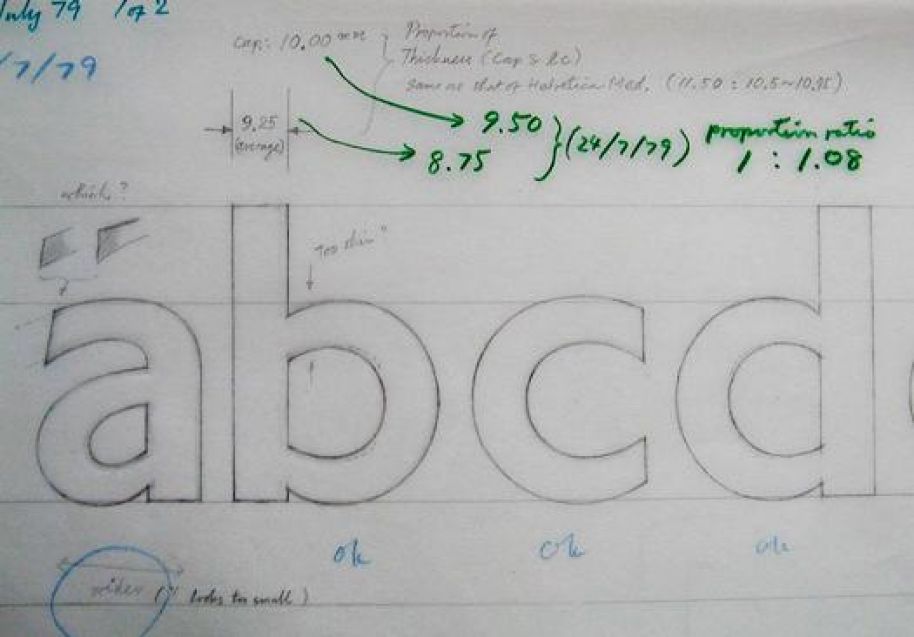 July 79 1 of 2
/7/79
Cap: 10.00 mm } Proportion of
Thickness (Cap & lc)
same as that of Helvetica Med. (11.50 : 10.5~10.95)
9.25
(average)
9.50
8.75
} (24/7/79)
proportion ratio
1 : 1.08
which?
"too thin"
abcd
ok
ok
ok
wider (" looks too small)